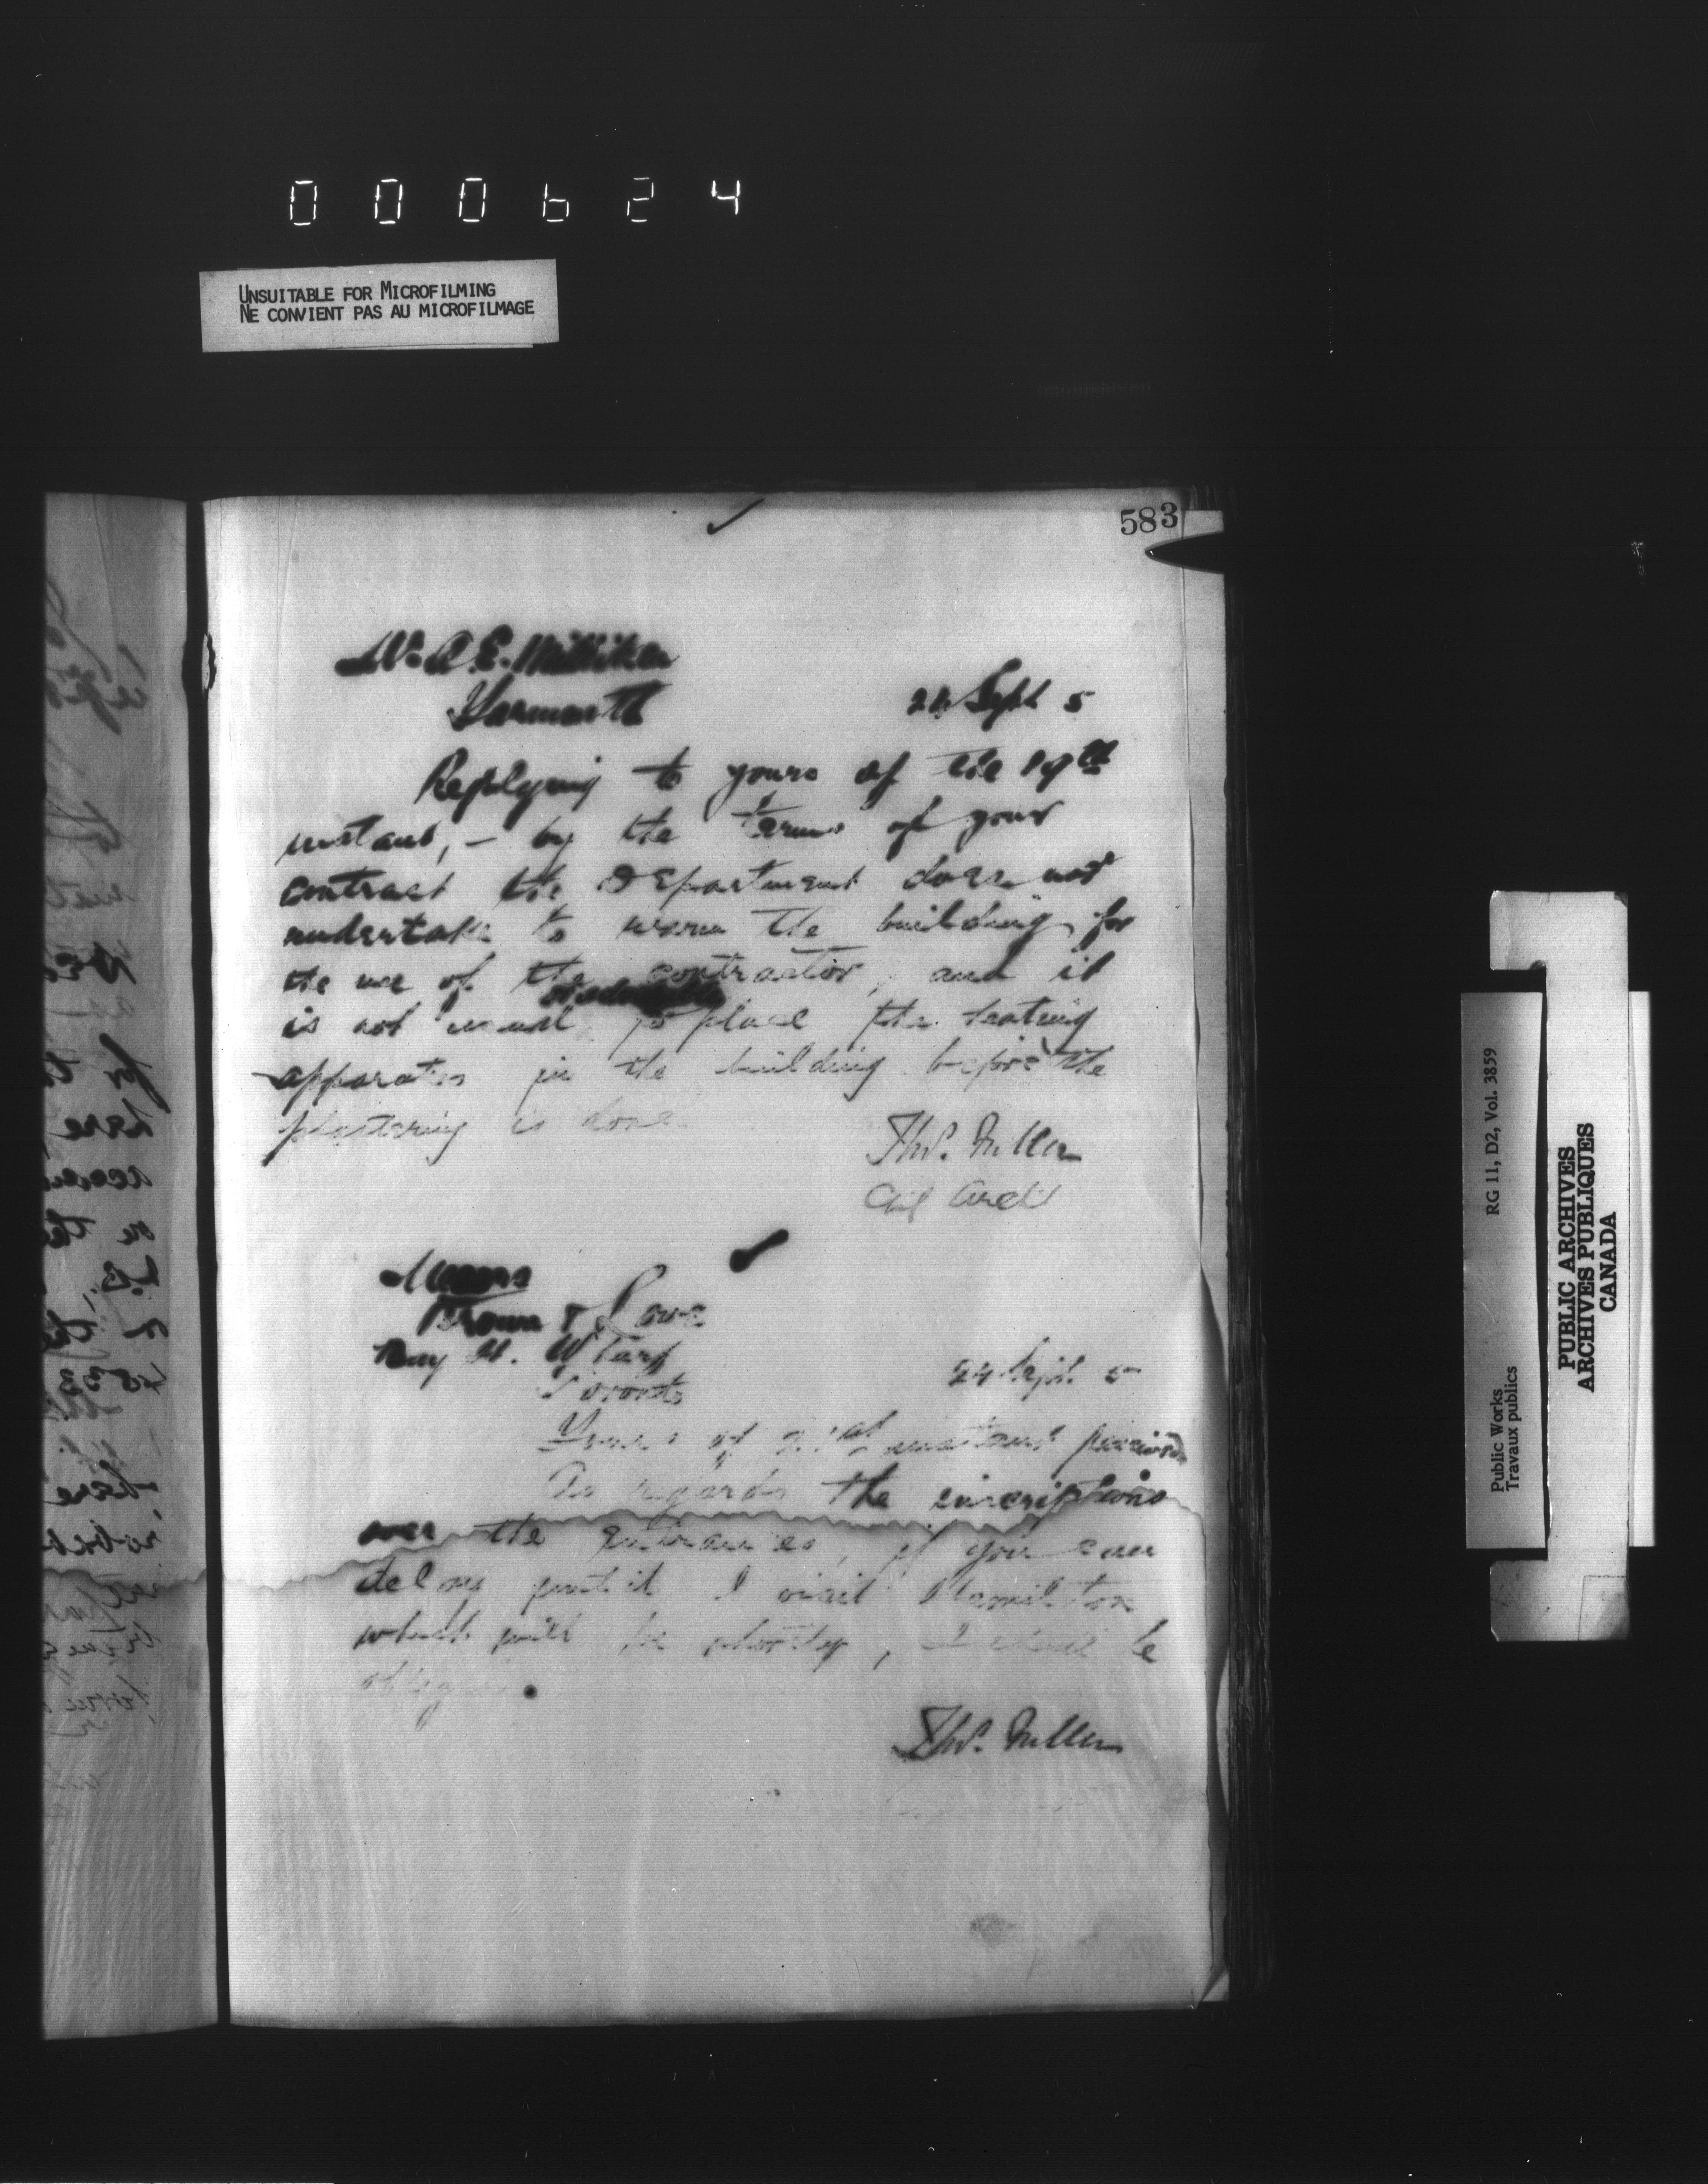 000624
UNSUITABLE FOR MICROFILMING
NE CONVIENT PAS AU MICROFILMAGE
583
Mr. A. E. Milliken
Yarmouth
24 Sept 5
Replying to yours of the 19th
instant, - by the terms of your
contract the Department does not
undertake to warm the building for
the use of the contractor, and it
or advisable
is not usual to place the heating
apparatus in the building before the
plastering is done.
Thos. Fuller
Chf Archt
Messrs
Brown & Love
Bay St. Wharf
Toronto
24 Sept. 5
Yours of 21st instant received
As regards the inscriptions
over the entrances, if you can
delay until I visit Hamilton
which will be shortly, I shall be
obliged.
Thos. Fuller
RG 11, D2, Vol. 3859
Public Works
Travaux publics
PUBLIC ARCHIVES
ARCHIVES PUBLIQUES
CANADA